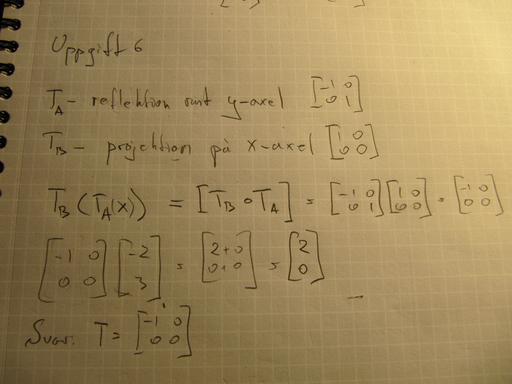 Uppgift 6
T_A - reflektion runt y-axel [-1 0; 0 1]
T_B - projektion på x-axel [1 0; 0 0]
T_B(T_A(x)) = [T_B ∘ T_A] = [-1 0; 0 1][1 0; 0 0] = [-1 0; 0 0]
[-1 0; 0 0][-2; 3] = [2+0; 0+0] = [2; 0]
Svar: T = [-1 0; 0 0]